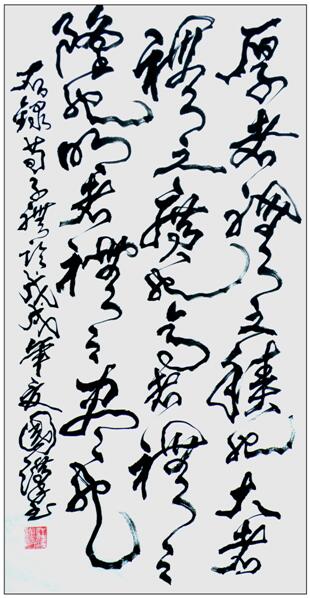 厚者禮之積也大者
禮之廣也高者禮之
隆也明者禮之盡也
右錄荀子禮論戊戌年夏國書